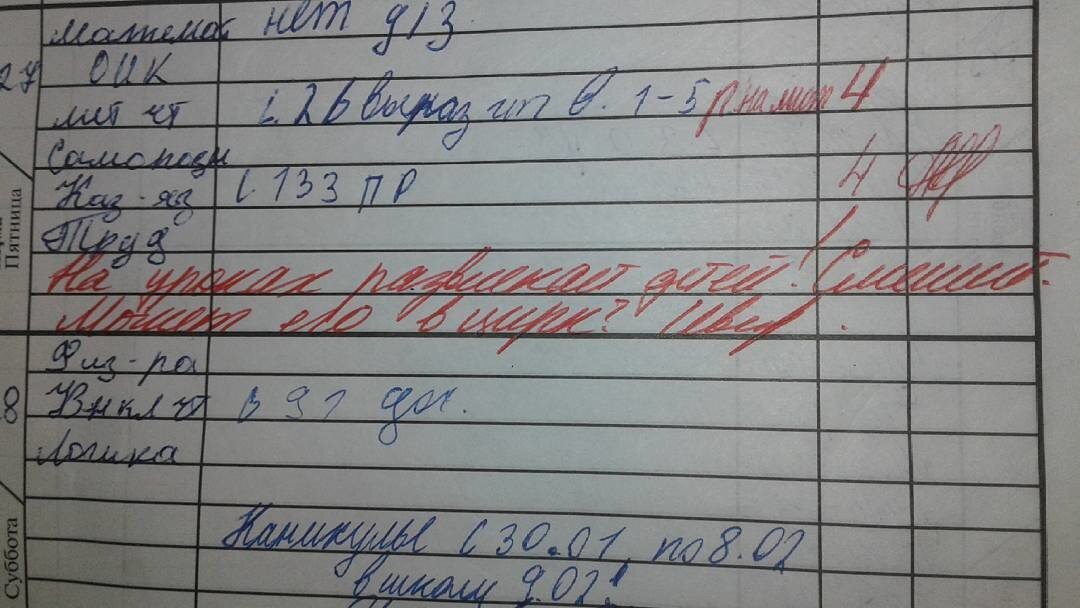 математ нет д/з
27 ОИК
лит чт с. 26 выраз чт в. 1-5 4
Самопозн
Каз-яз с 133 ПР 4
Пятница
Труд
На уроках развлекает детей! Смешит.
Может его в цирк?
Физ-ра
8 Внкл чт в 91 дч.
Логика
Суббота
Каникулы с 30.01 по 8.02
в школу 9.02!